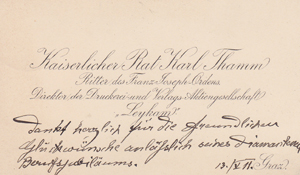 Kaiserlicher Rat Karl Thamm
Ritter des Franz Joseph-Ordens
Direktor der Druckerei- und Verlags-Aktiengesellschaft
"Leykam"
dankt herzlich für die freundlichen
Glückwünsche anläßlich seines diamantenen
Berufsjubiläums.
Graz.